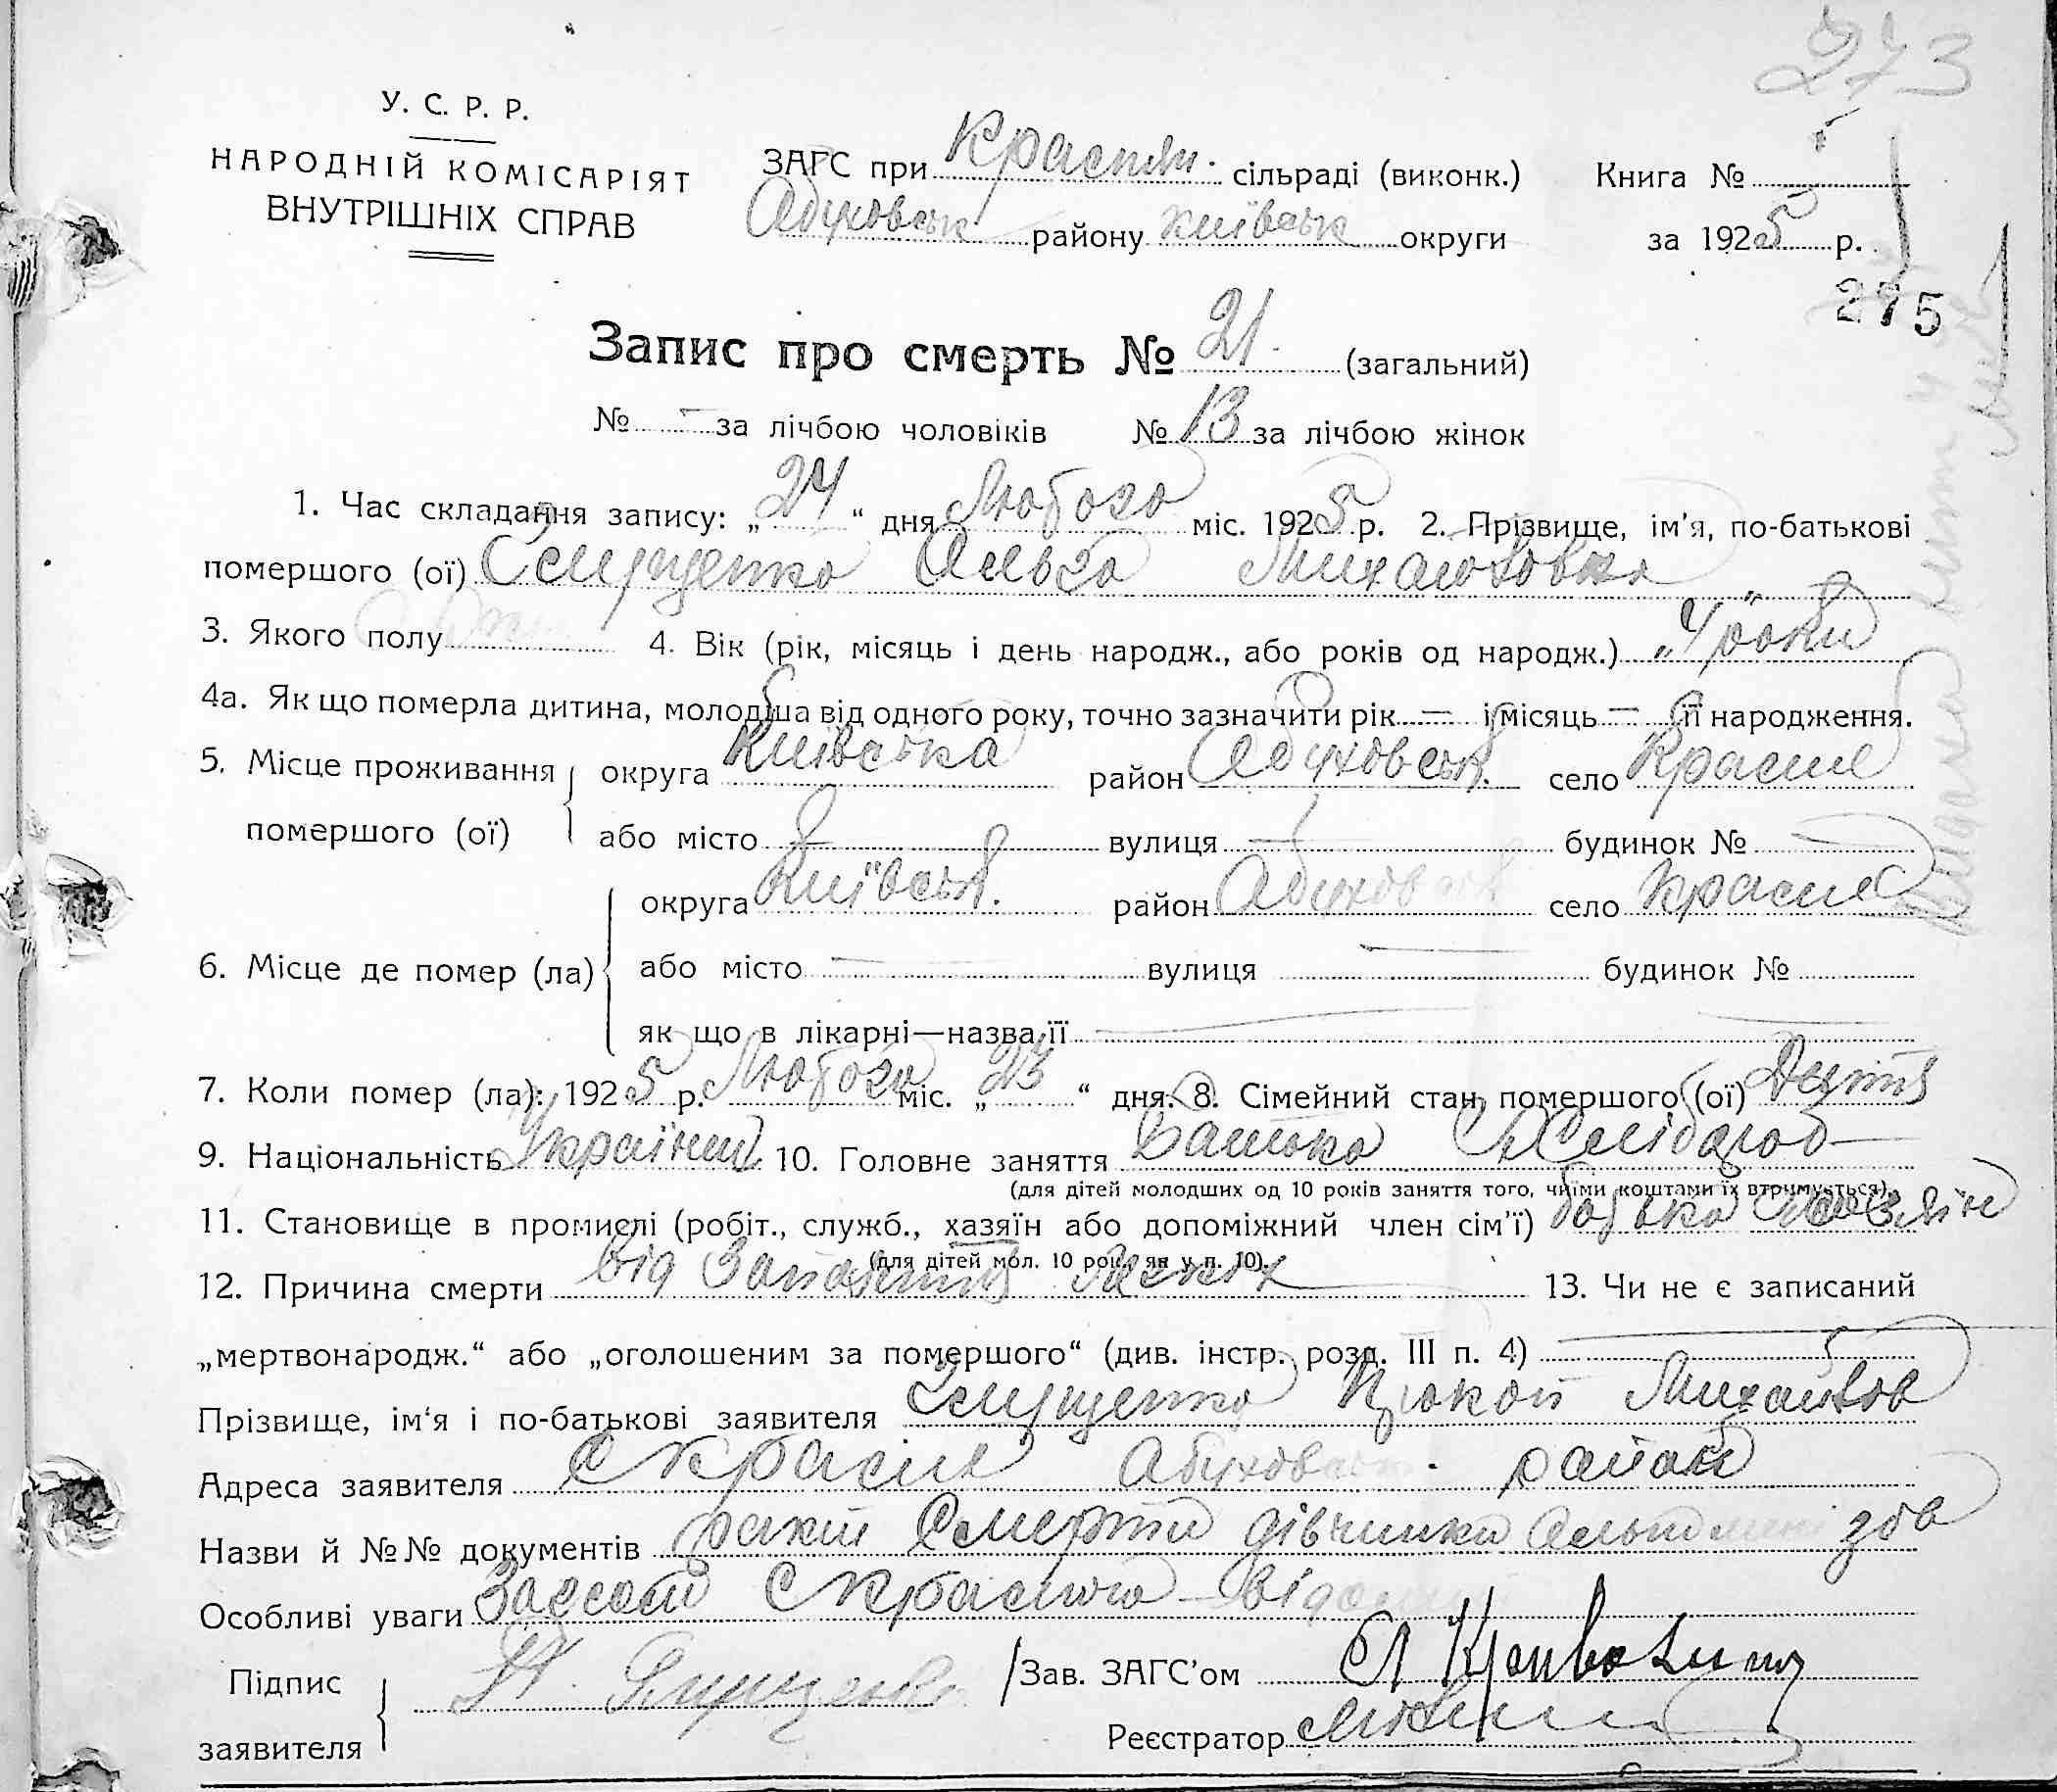 273
У. С. Р. Р.
НАРОДНІЙ КОМІСАРІЯТ
ВНУТРІШНІХ СПРАВ
ЗАГС при Краснян. сільраді (виконк.) Книга №
Обуховськ району Київськ округи за 1925 р.
275
Запис про смерть № 21. (загальний)
№ - за лічбою чоловіків № 13 за лічбою жінок
1. Час складання запису: „ 24 “ дня Лютого міс. 1925 р. 2. Прізвище, ім'я, по-батькові
помершого (ої) Ольга Михайловна
3. Якого полу 4. Вік (рік, місяць і день народж., або років од народж.) „4 роки
4а. Як що померла дитина, молодша від одного року, точно зазначити рік — і місяць — її народження.
5. Місце проживання помершого (ої) округа Київська район Обуховськ. село Красне
або місто — вулиця — будинок № —
6. Місце де помер (ла) округа Київськ. район Обуховськ село Красне
або місто — вулиця — будинок №
як що в лікарні—назва її —
7. Коли помер (ла): 1925 р. Лютого міс. „ 23 “ дня. 8. Сімейний стан помершого (ої) Дитя
9. Національність 10. Головне заняття Батько Хлібороб
(для дітей молодших од 10 років заняття того, чиїми коштами їх втримується).
11. Становище в промислі (робіт., служб., хазяїн або допоміжний член сім'ї) батько хозяїн
(для дітей мол. 10 рок. як у п. 10).
12. Причина смерти від Запалення Легких 13. Чи не є записаний
„мертвонародж.“ або „оголошеним за помершого“ (див. інстр. розд. III п. 4) —
Прізвище, ім'я і по-батькові заявителя Прокоп Михайлов
Адреса заявителя с Красне Обуховськ. район
Назви й №№ документів Смерти дівчинки
Особливі уваги с Красного
Підпис заявителя Зав. ЗАГС'ом
Реєстратор